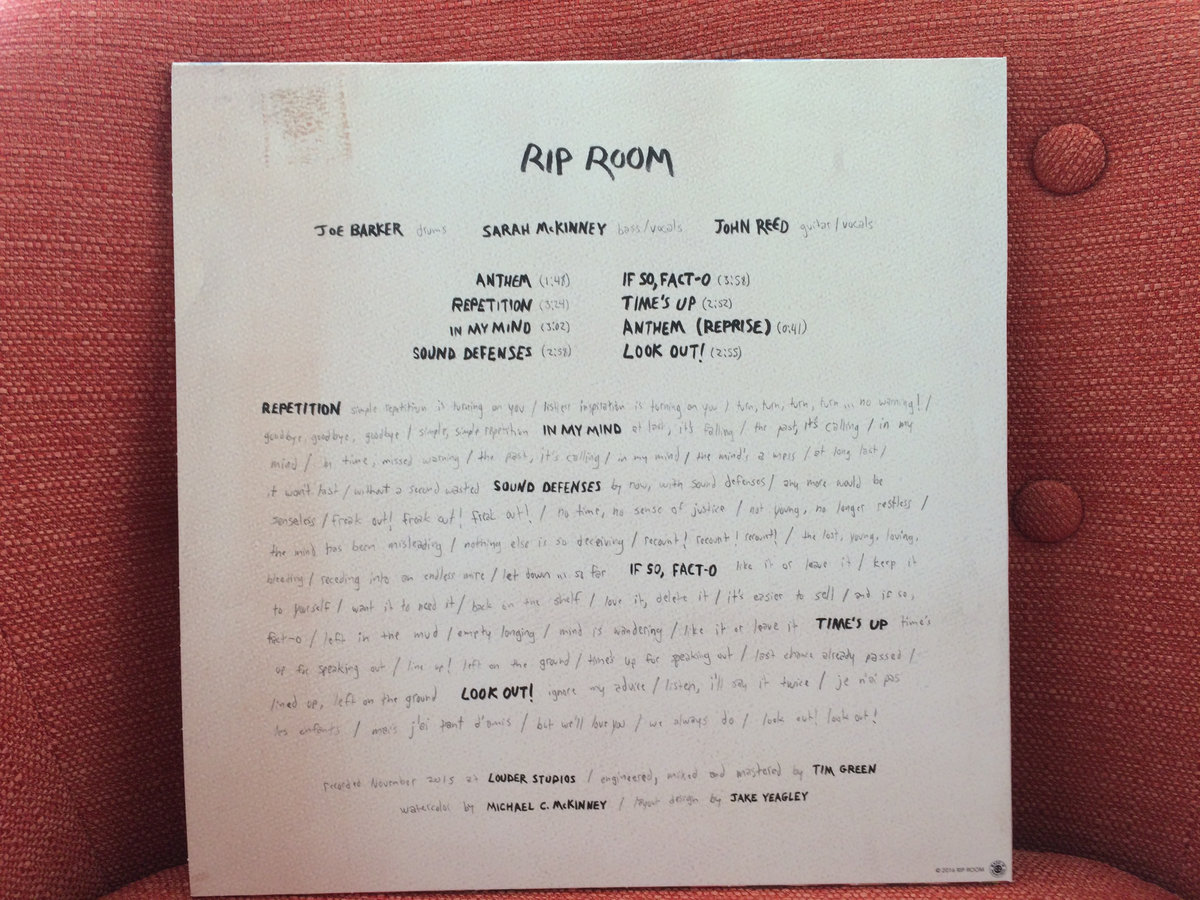 RIP ROOM
JOE BARKER drums SARAH McKINNEY bass/vocals JOHN REED guitar/vocals
ANTHEM (1:48) IF SO, FACT-O (3:58)
REPETITION (3:24) TIME'S UP (2:52)
IN MY MIND (3:02) ANTHEM (REPRISE) (0:41)
SOUND DEFENSES (2:58) LOOK OUT! (2:55)
REPETITION simple repetition is turning on you / listless inspiration is turning on you / turn, turn, turn, turn ... no warning! /
goodbye, goodbye, goodbye / simple, simple repetition IN MY MIND at last, it's falling / the past, it's calling / in my
mind / in time, missed warning / the past, it's calling / in my mind / the mind's a mess / at long last /
it won't last / without a second wasted SOUND DEFENSES by now, with sound defenses / any more would be
senseless / freak out! freak out! freak out! / no time, no sense of justice / not young, no longer restless /
the mind has been misleading / nothing else is so deceiving / recount! recount! recount! / the lost, young, loving,
bleeding / receding into an endless mire / let down ... so far IF SO, FACT-O like it or leave it / keep it
to yourself / want it to need it / back on the shelf / love it, delete it / it's easier to sell / and if so,
fact-o / left in the mud / empty longing / mind is wandering / like it or leave it TIME'S UP time's
up for speaking out / line up! left on the ground / time's up for speaking out / last chance already passed /
lined up, left on the ground LOOK OUT! ignore my advice / listen, i'll say it twice / je n'ai pas
les enfants / mais j'ai tant d'amis / but we'll love you / we always do / look out! look out!
recorded November 2015 at LOUDER STUDIOS / engineered, mixed and mastered by TIM GREEN
watercolor by MICHAEL C. McKINNEY / layout design by JAKE YEAGLEY
© 2016 RIP ROOM